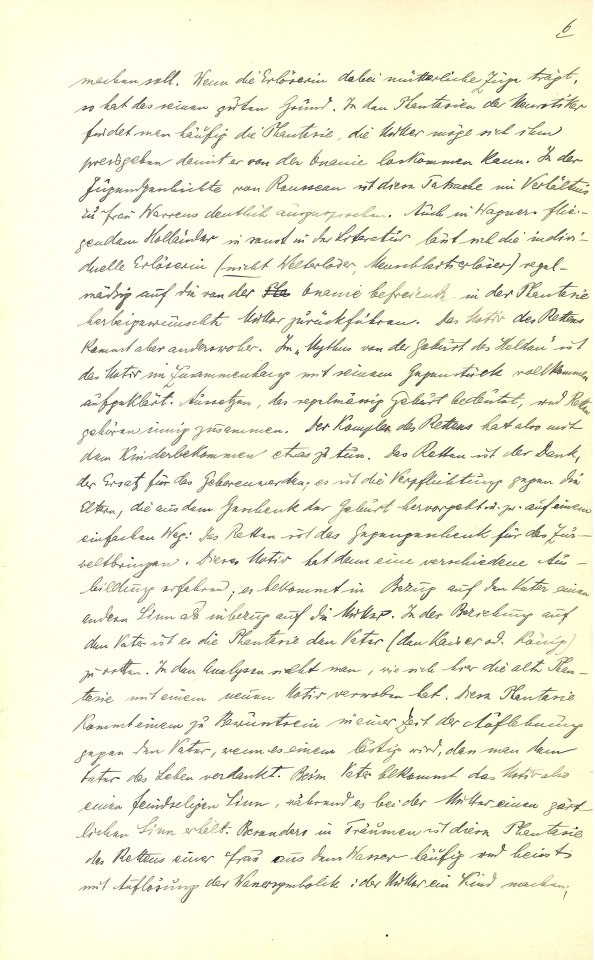 6
machen soll. Wenn die Erlöserin dabei mütterliche Züge trägt,
so hat das seinen guten Grund. In den Phantasien der Neurotiker
findet man häufig die Phantasie, die Mutter möge sich ihm
preisgeben damit er von der Onanie loskommen kann. In der
Jugendgeschichte von Rousseau ist diese Tatsache im Verhältnis
zu Frau Warrens deutlich ausgesprochen. Auch in Wagners flie-
gendem Holländer u sonst in der Literatur lässt sich die indivi-
duelle Erlöserin (nicht Welterlöser, Menschheitserlöser) regel-
mässig auf die von der Onanie befreiende in der Phantasie
herbeigewünschte Mutter zurückführen. Das Motiv des Rettens
kommt aber anderswoher. Im "Mythus von der Geburt des Helden" ist
das Motiv im Zusammenhang mit seinem Gegenstück vollkommen
aufgeklärt. Aussetzen, das regelmässig Geburt bedeutet, und Retten
gehören innig zusammen. Der Komplex des Rettens hat also mit
dem Kinderbekommen etwas zu tun. Das Retten ist der Dank,
der Ersatz für das Geborenwerden; es ist die Verpflichtung gegen die
Eltern, die aus dem Geschenk der Geburt hervorgeht u. zw. auf einem
einfachen Weg: Das Retten ist das Gegengeschenk für das Zur-
weltbringen. Dieses Motiv hat dann eine verschiedene Aus-
bildung erfahren; es bekommt in Bezug auf den Vater einen
andern Sinn als inbezug auf die Mutter. In der Beziehung auf
den Vater ist es die Phantasie den Vater (den Kaiser od. König)
zu retten. In den Analysen sieht man, wie sich hier die alte Phan-
tasie mit einem neuen Motiv verwoben hat. Diese Phantasie
kommt einem zu Bewusstsein in einer Zeit der Auflehnung
gegen den Vater, wenn es einem lästig wird, dass man dem
Vater das Leben verdankt. Beim Vater bekommt das Motiv also
einen feindseligen Sinn, während es bei der Mutter einen zärt-
lichen Sinn erhält. Besonders in Träumen ist diese Phantasie
des Rettens einer Frau aus dem Wasser häufig und heisst
mit Auflösung der Wassersymbolik: der Mutter ein Kind machen,